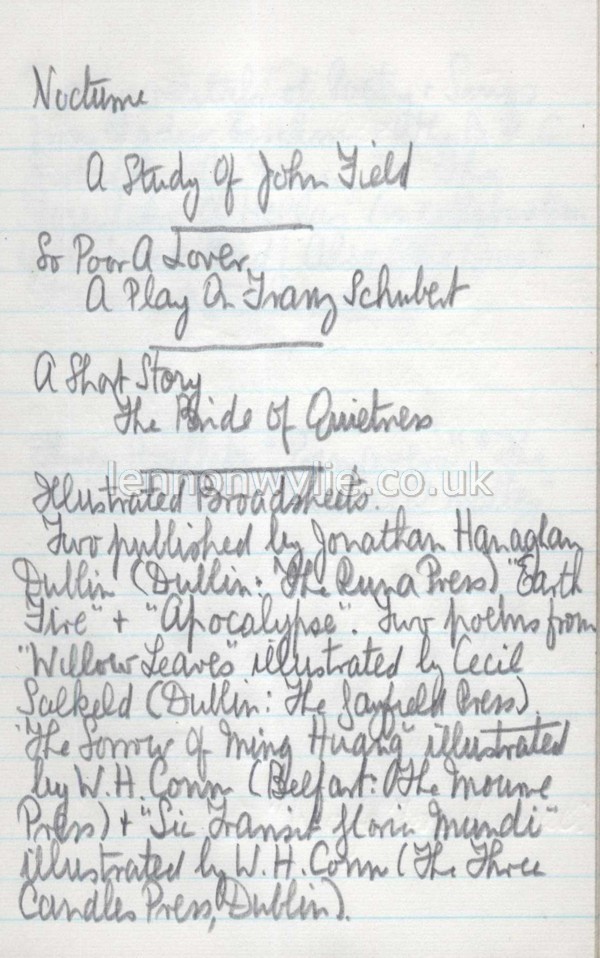 Nocturne
A Study Of John Field
So Poor A Lover,
A Play On Franz Schubert
A Short Story
The Bride of Quietness
lennonwylie.co.uk
Illustrated Broadsheets.
Two published by Jonathan Hanaghan
Dublin (Dublin: The Runa Press) "Earth
Fire" + "Apocalypse". Two poems from
"Willow Leaves" illustrated by Cecil
Salkeld (Dublin: The Gayfield Press).
"The Sorrow of Ming Huang" illustrated
by W.H. Conn (Belfast: The Mourne
Press) + "Sic Transit Gloria Mundi"
illustrated by W.H. Conn (The Three
Candles Press, Dublin).